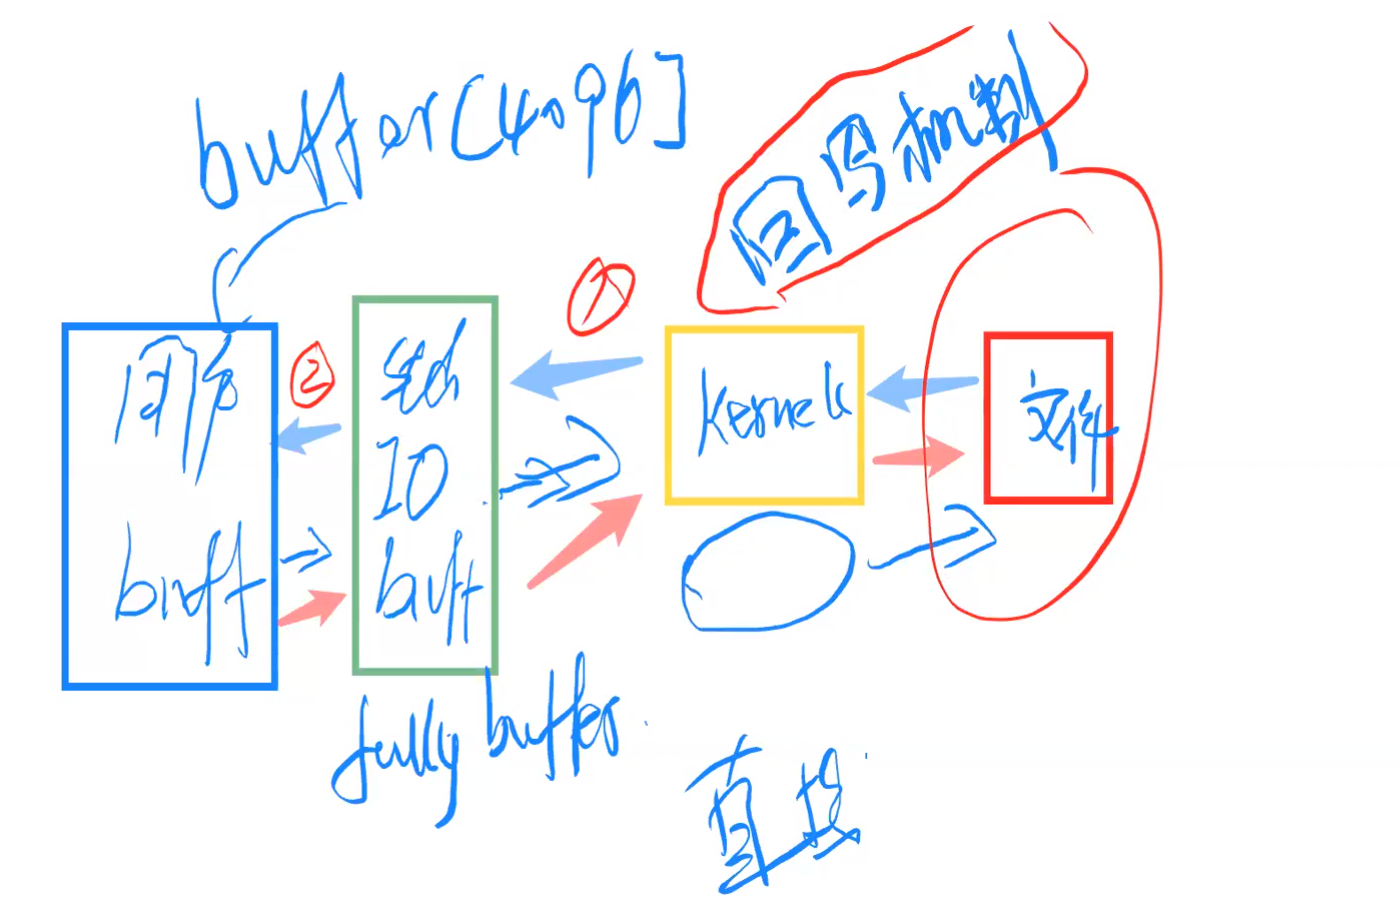 buffer[4096]
回写机制
①
用户
buff
②
std
IO
buff
kernel
文件
fully buffer
直接